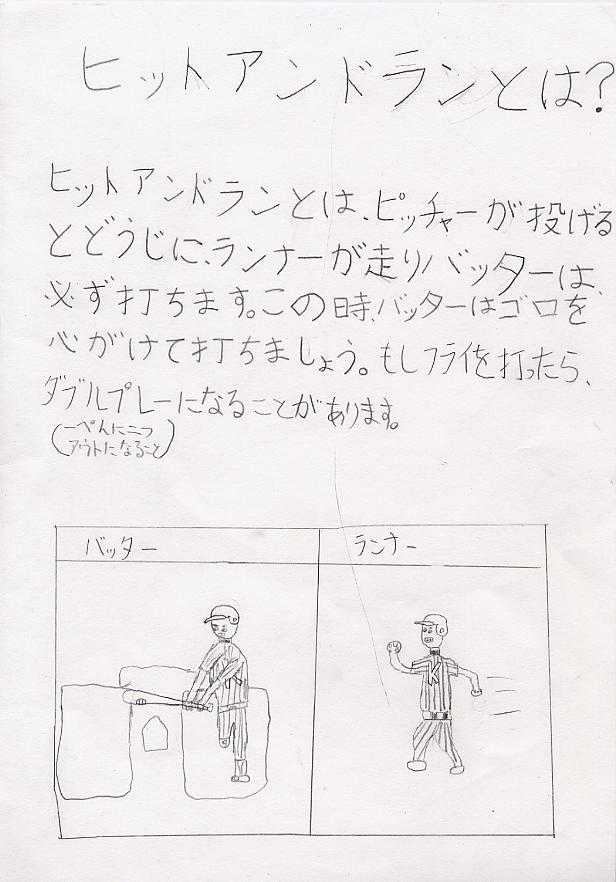 ヒットアンドランとは?
ヒットアンドランとは、ピッチャーが投げる
とどうじに、ランナーが走りバッターは、
必ず打ちます。この時、バッターはゴロを
心がけて打ちましょう。もしフライを打ったら、
ダブルプレーになることがあります。
(一ぺんに二つ
アウトになること)
バッター
ランナー
K